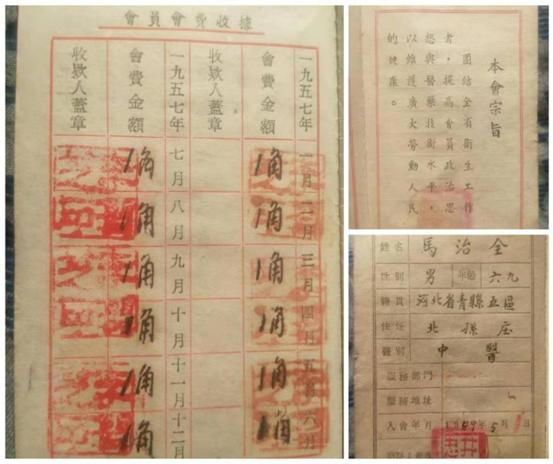 會員會費收據
一九五七年 一月 二月 三月 四月 五月 六月
會費金額 1角 1角 1角 1角 1角 1角
收欵人蓋章
一九五七年 七月 八月 九月 十月 十一月 十二月
會費金額 1角 1角 1角 1角 1角 1角
收欵人蓋章
本會宗旨
團結全省衛生工作
者，提高會員政治思
想與醫藥技術水平，
以維護廣大勞動人民
的健康。
姓名 馬治全
性別 男 年齡 六九
籍貫 河北省青縣五區
住址 北孫庄
醫別 中醫
服務部門
服務地址
入會年月